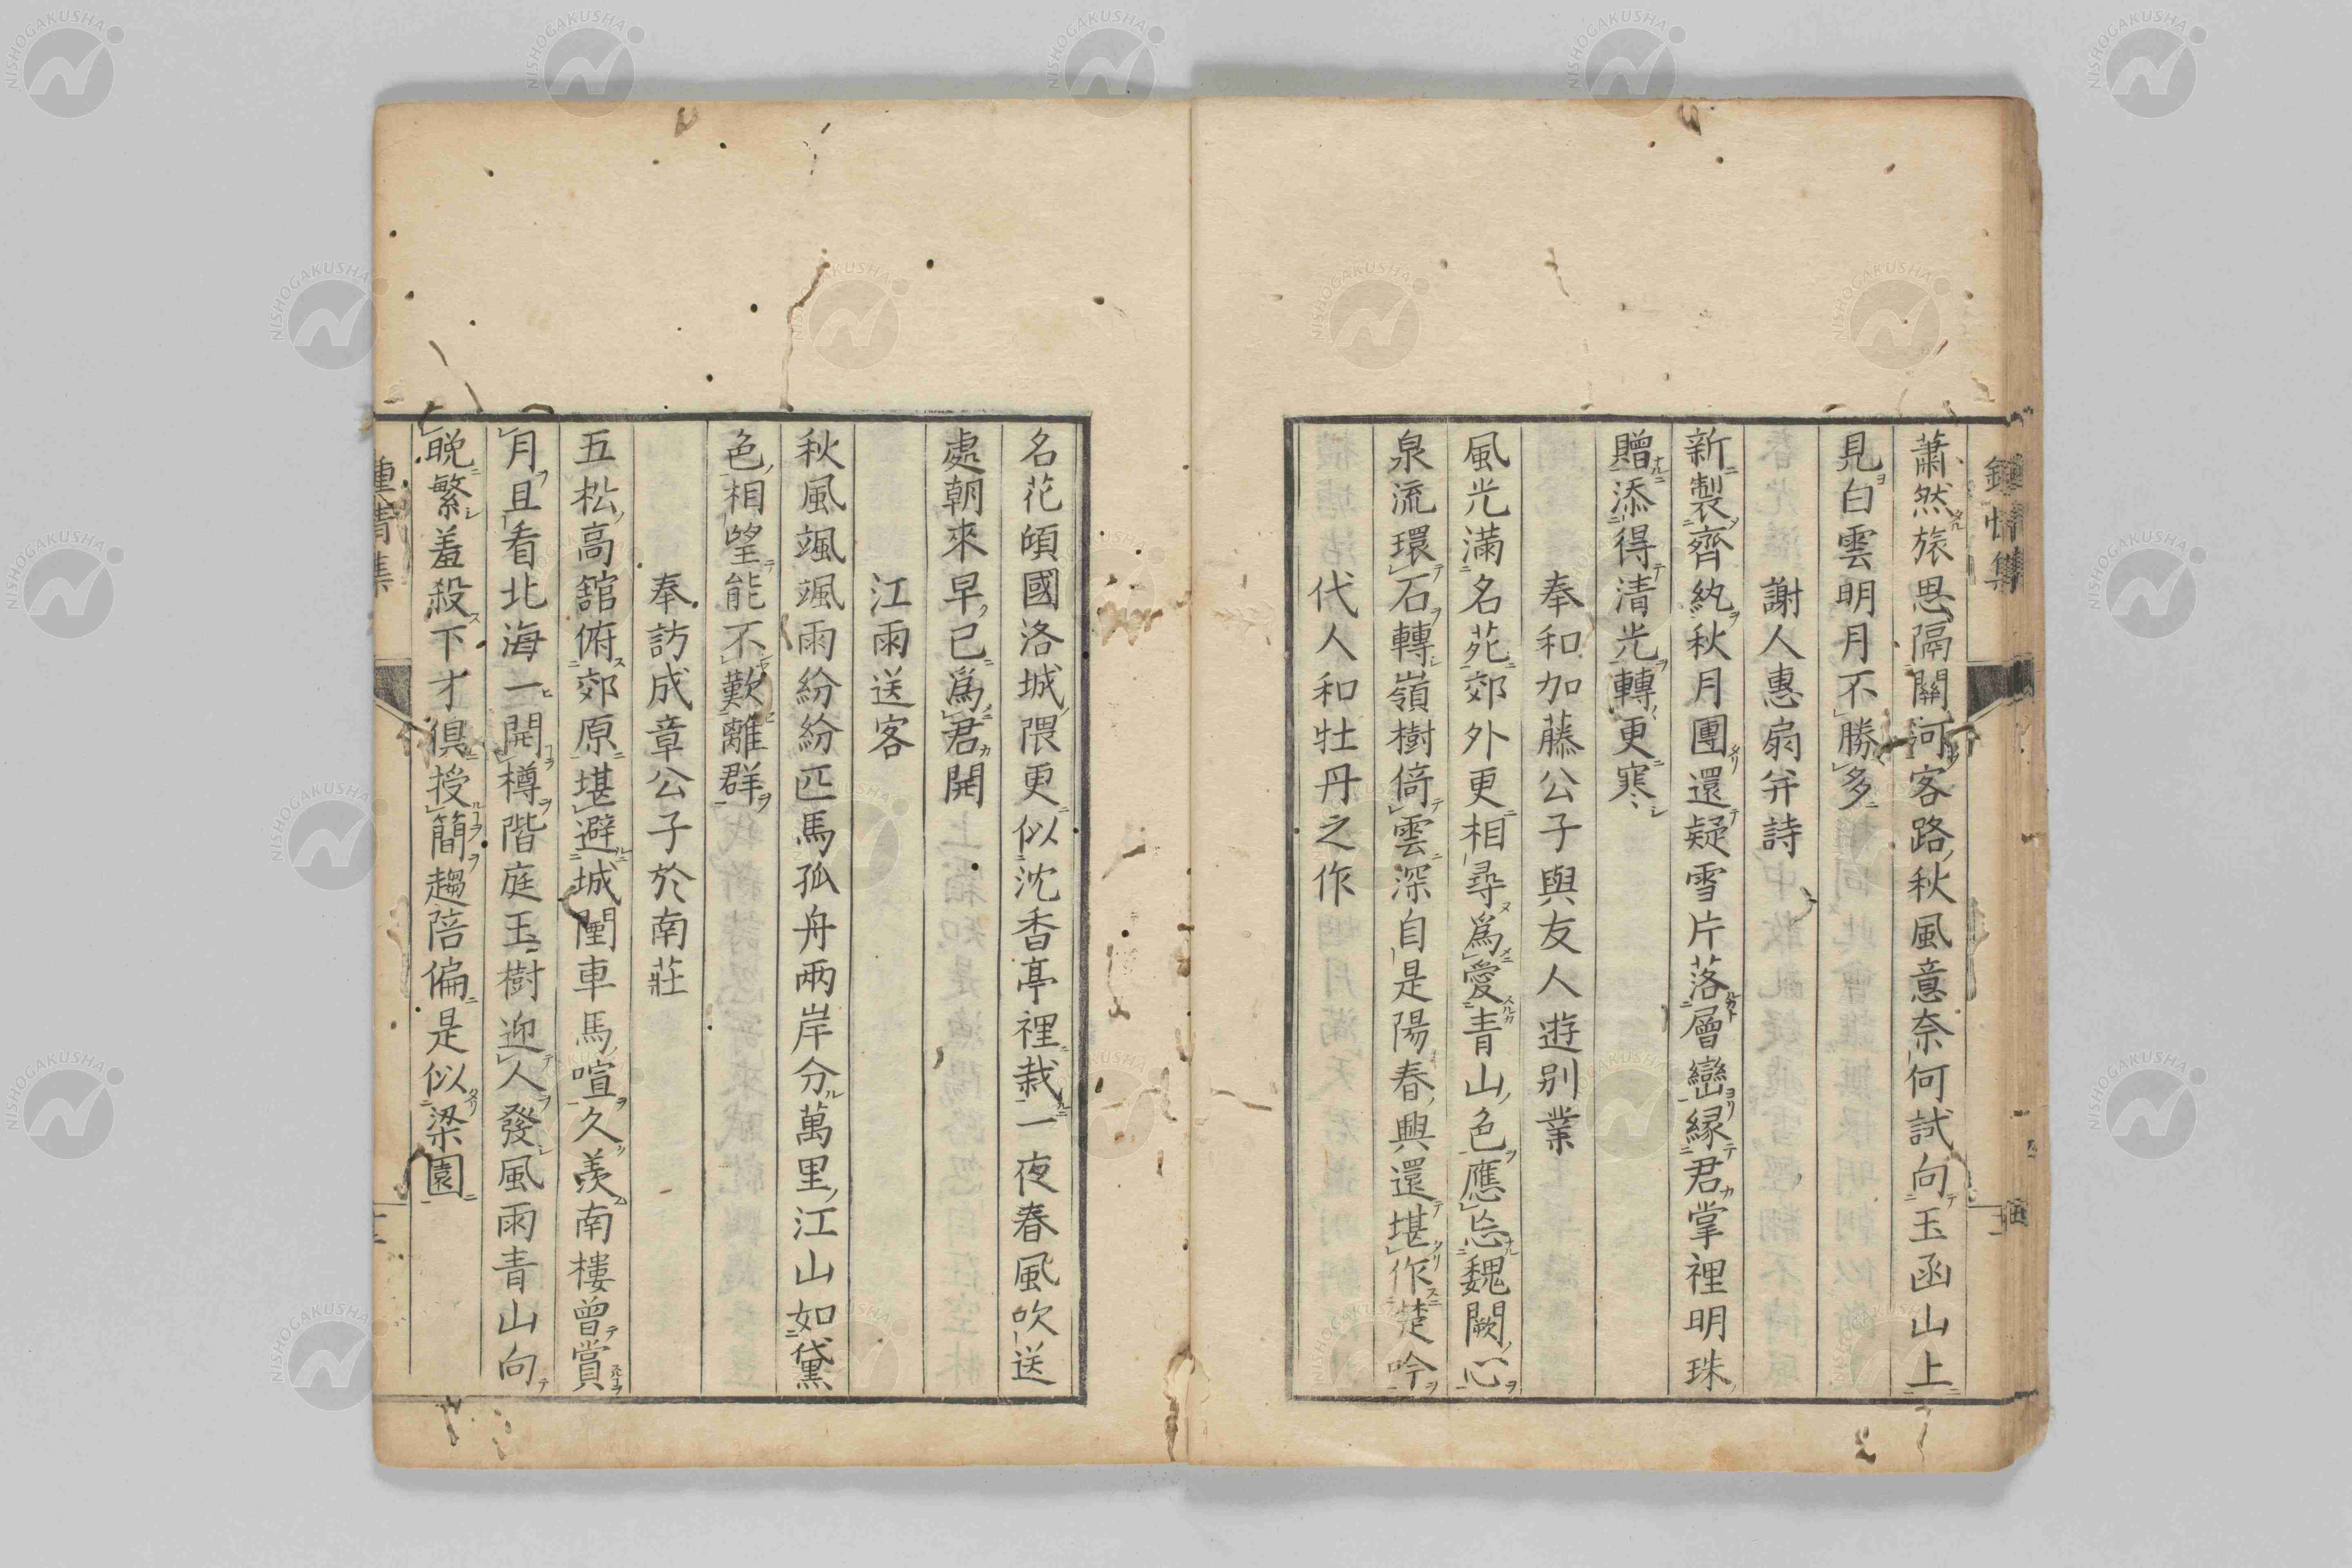 蕭然旅思隔關河客路秋風意奈何試向玉函山上
見白雲明月不勝多
謝人惠扇并詩
新製齊紈秋月團還疑雪片落層巒縁君掌裡明珠
贈添得清光轉更寒
奉和加藤公子與友人遊別業
風光滿名苑郊外更相尋爲愛青山色應忘魏闕心
泉流環石轉嶺樹倚雲深自是陽春興還堪作楚吟
代人和牡丹之作
名花頃國洛城隈更似沈香亭裡栽一夜春風吹送
處朝來早已爲君開
江雨送客
秋風颯颯雨紛紛匹馬孤舟兩岸分萬里江山如黛
色相望能不歎離群
奉訪成章公子於南莊
五松高舘俯郊原堪避城闉車馬喧久羨南樓曾賞
月且看北海一開樽階庭玉樹迎人發風雨青山向
晩繁羞殺下才俱授簡趨陪偏是似梁園